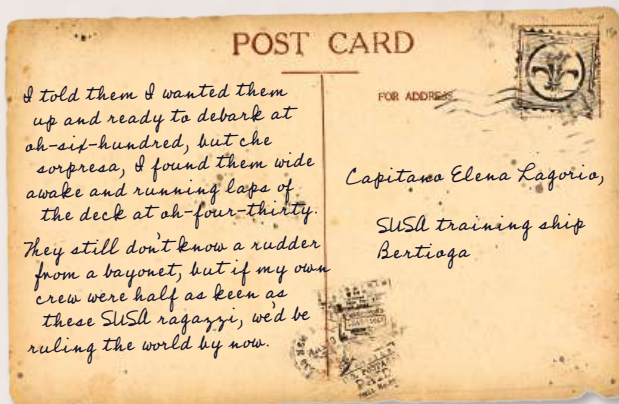 POST CARD
I told them I wanted them
up and ready to debark at
oh-six-hundred, but che
sorpresa, I found them wide
awake and running laps of
the deck at oh-four-thirty.
They still don't know a rudder
from a bayonet, but if my own
crew were half as keen as
these SUSA ragazzi, we'd be
ruling the world by now.
FOR ADDRESS
Capitano Elena Lagorio,
SUSA training ship
Bertioga